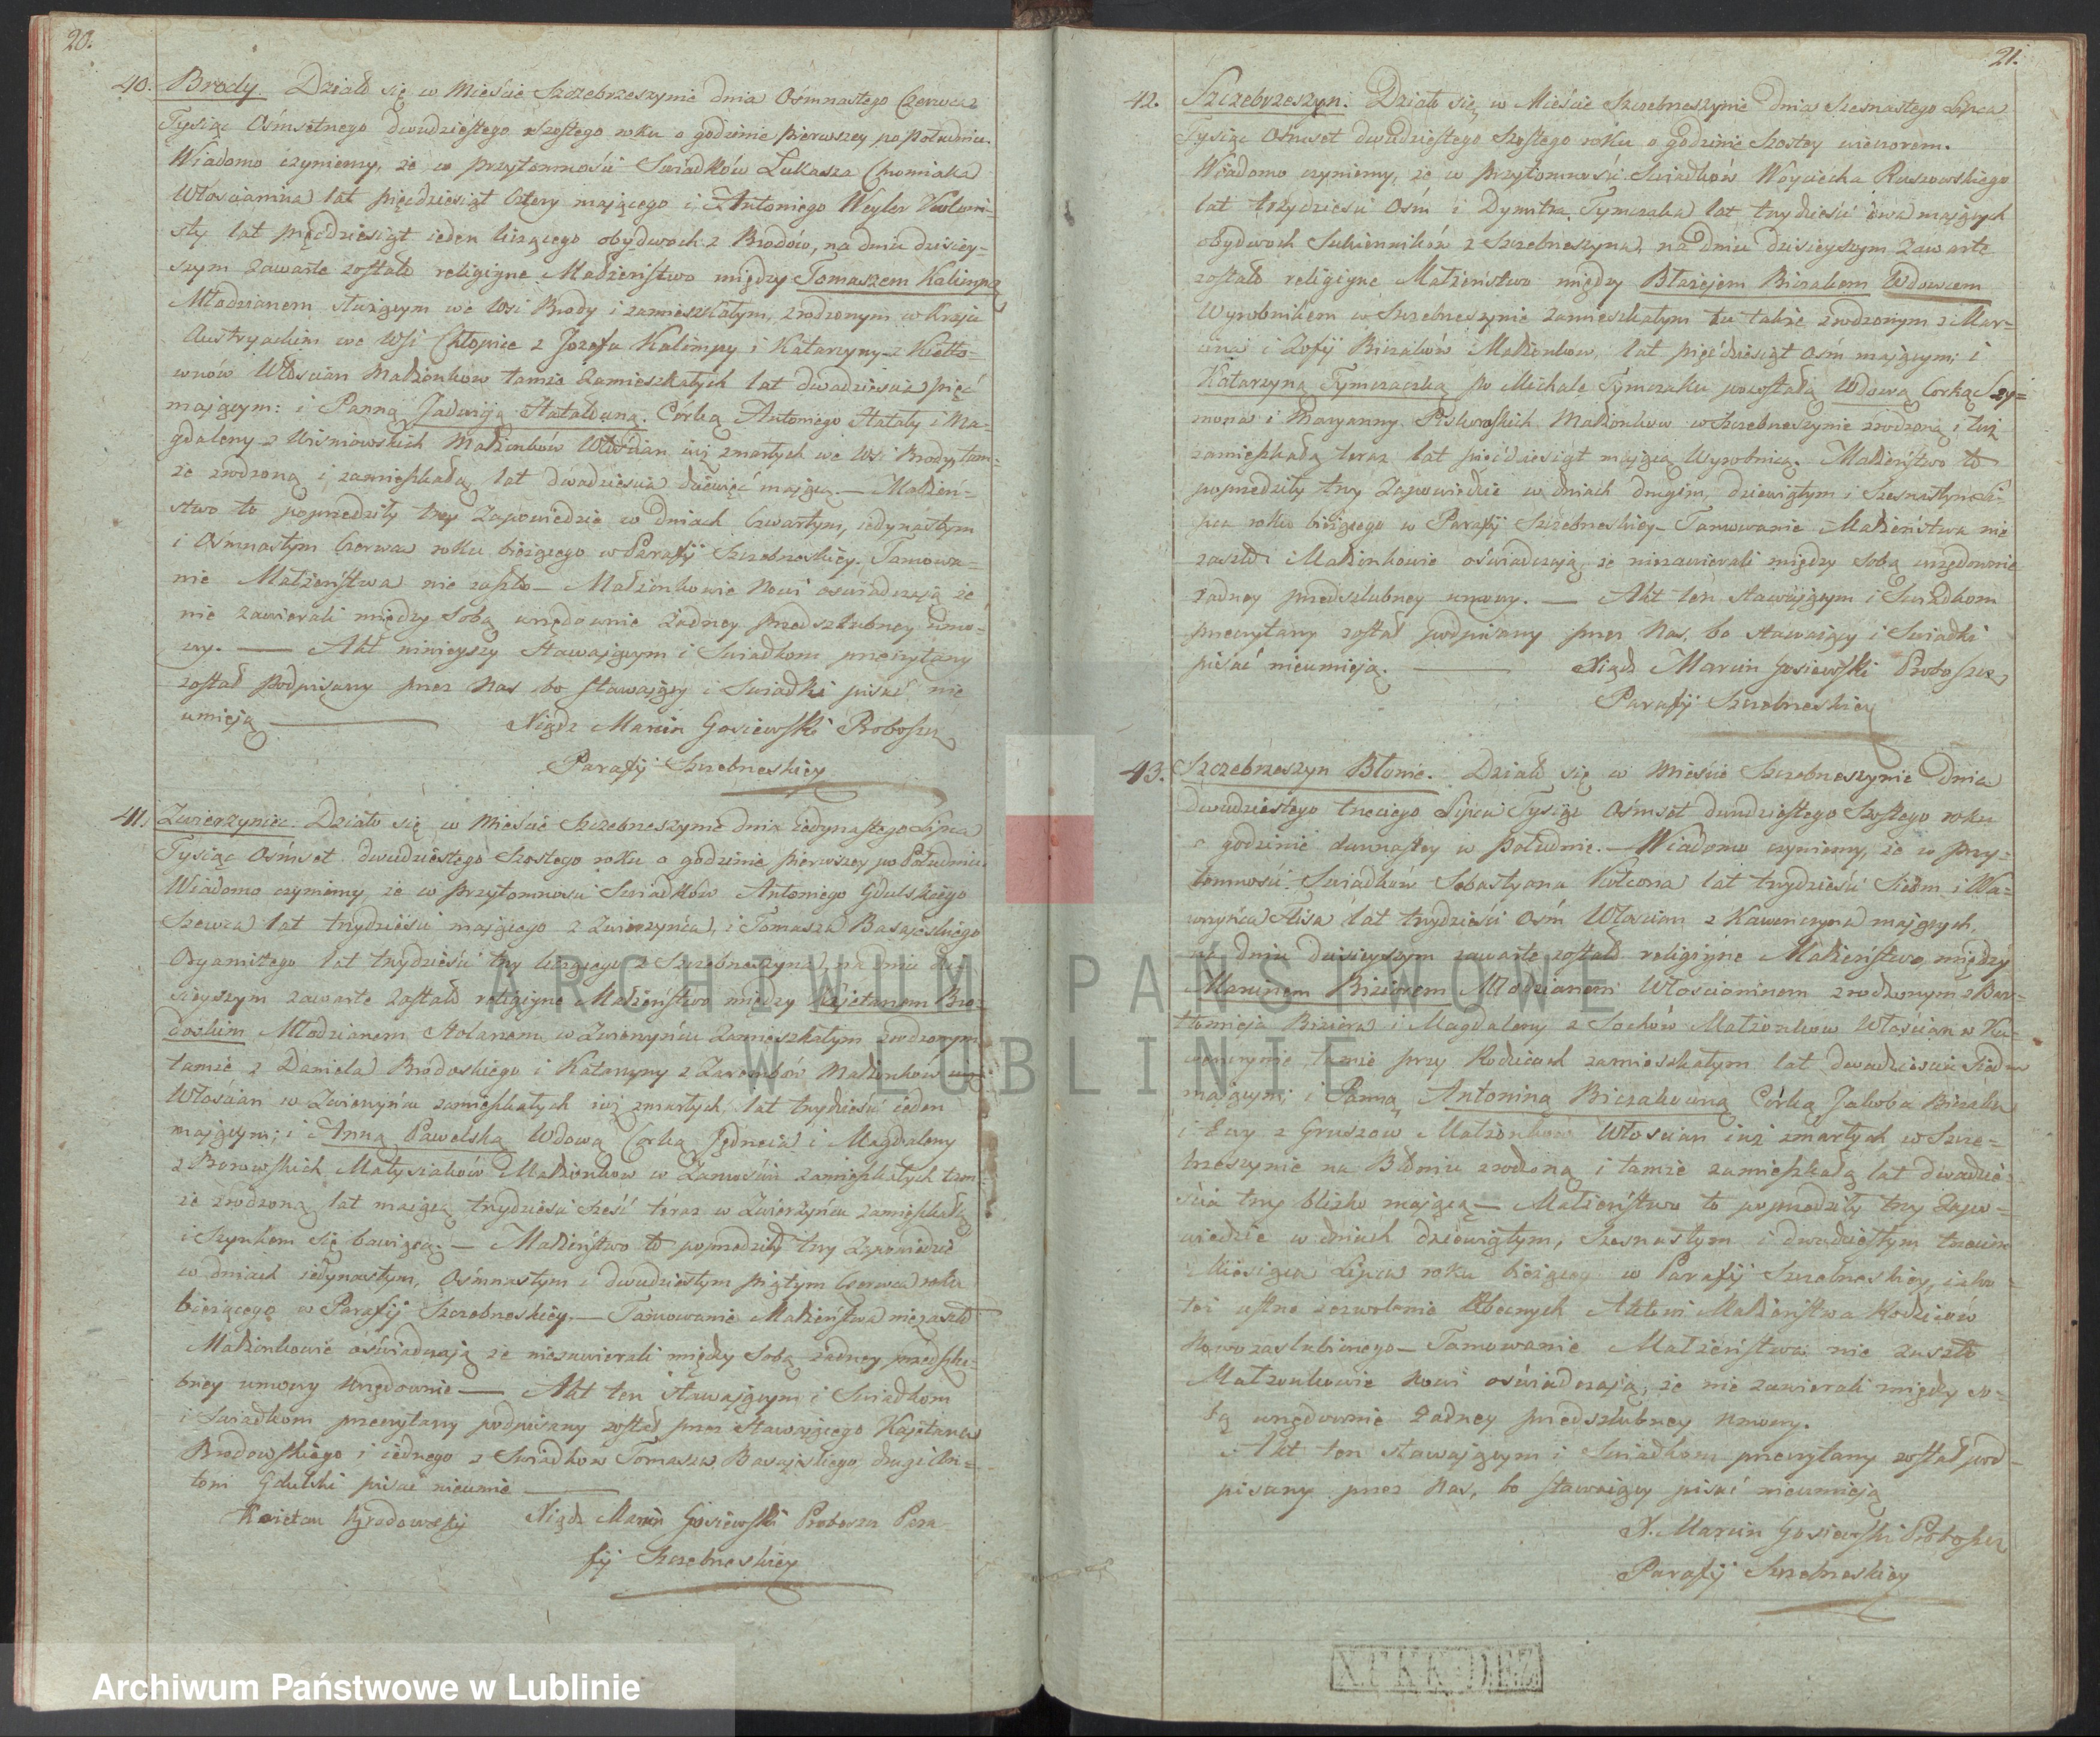 20.
40. Brody. Działo się w Mieście Szczebrzeszynie dnia Ośmnastego Czerwca
Tysiąc Ośmsetnego dwudziestego szostego roku o godzinie pierwszey po południu.
Wiadomo czyniemy, że w przytomności Swiadków Łukasza Chomiaka
Włościanina lat pięćdziesiąt Cztery maiącego i Antoniego Weyler
sty lat pięćdziesiąt ieden liczącego obydwoch z Brodów, na dniu dzisiey-
szym zawarte zostało religijne Małżeństwo między Tomaszem Kalimpą
Młodzianem służącym we Wsi Brody i zamieszkałym, zrodzonym w Kraju
Austryackim we Wsi Chłopice z Jozefa Kalimpy i Katarzyny z Kiełto-
wnów Włościan Małżonków tamże Zamieszkałych lat dwadzieścia pięć
mającym: i Panną Jadwigą Hatałowną. Córką Antoniego Hatały i Ma-
gdaleny z Wiśniowskich Małżonków Włościan iuż zmarłych we Wsi Brody tam-
że zrodzoną i zamieszkałą lat dwadzieścia dziewięć mającą. — Małżeń-
stwo to poprzedziły trzy Zapowiedzie w dniach Czwartym, iedynastym
i Ośmnastym Czerwca roku bieżącego w Parafij Szczebrzeskiey. Tamowa-
nie Małżeństwa nie zaszło — Małżonkowie Nowi oświadczają że
nie zawierali między Sobą urzędownie żadney przedszlubney umo-
wy. — Akt ninieyszy Stawającym i Swiadkom przeczytany
został podpisany przez Nas bo stawaiący i Swiadki pisać nie
umieją
Xiądz Marcin Gosiewski Proboszcz
Parafij Szczebrzeskiey
41. Zwierzyniec. Działo się w Mieście Szczebrzeszynie dnia iedynastego Lipca
Tysiąc Ośmset dwudziestego Szostego roku o godzinie pierwszey po Południu.
Wiadomo czyniemy, że w przytomności Swiadków Antoniego Gdulskiego
Szewca lat trzydzieści mającego z Zwierzyńca, i Tomasza Basajskiego
Organistego lat trzydzieści trzy liczącego z Szczebrzeszyna, na dniu dzi-
sieyszym zawarte zostało religijne Małżeństwo między Kajetanem Bro-
dowskim Młodzianem Stolarzem w Zwierzyńcu Zamieszkałym zrodzonym
tamże z Daniela Brodowskiego i Katarzyny z Zarembów Małżonków
Włościan w Zwierzyńcu zamieszkałych iuż zmarłych, lat trzydzieści ieden
mającym; i Anną Pawelską Wdową Corką Jędrzeia i Magdaleny
z Borowskich Małysiaków Małżonków w Zamościu zamieszkałych tam-
że zrodzoną lat maiącą trzydzieści sześć teraz w Zwierzyńcu zamieszkałą
i Szynkiem się bawiącą. — Małżeństwo to poprzedziły trzy Zapowiedzie
w dniach iedynastym, Ośmnastym i dwudziestym piątym Czerwca roku
bieżącego w Parafij Szczebrzeskiey. — Tamowanie Małżeństwa nie zaszło
Małżonkowie oświadczają że niezawierali między Sobą żadney przedszlu-
bney umowy Urzędownie — Akt ten stawającym i Swiadkom
i Swiadkom przeczytany podpisany został przez Stawającego Kajetana
Brodowskiego i iednego z Swiadków Tomasza Basajskiego drugi An-
toni Gdulski pisać nieumie
Kaietan Brodowsky Xiądz Marcin Gosiewski Proboszcz Para-
fij Szczebrzeskiey
21.
42. Szczebrzeszyn. Działo się w Mieście Szczebrzeszynie dnia Szesnastego Lipca
Tysiąc Ośmset dwudziestego Szostego roku o godzinie Szostey wieczorem.
Wiadomo czyniemy, że w Przytomności Swiadków Woyciecha Ruszowskiego
lat trzydzieści Ośm i Dymitra Tymczaka lat trzydzieści dwa mających
obydwoch Sukienników z Szczebrzeszyna, na dniu dzisieyszym Zawarte
zostało religijne Małżeństwo między Błażejem Biczakiem Wdowcem
Wyrobnikiem w Szczebrzeszynie zamieszkałym tu także zrodzonym z Mar-
cina i Zofij Biczaków Małżonków, lat pięćdziesiąt Ośm mającym; i
Katarzyną Tymczaczką po Michale Tymczaku pozostałą Wdową Corką Szy-
mona i Maryanny Małżonków w Szczebrzeszynie zrodzoną i tuż
zamieszkałą teraz lat pięćdziesiąt mającą Wyrobnicą. Małżeństwo to
poprzedziły trzy Zapowiedzie w dniach drugim, dziewiątym i Szesnastym Li-
pca roku bieżącego w Parafij Szczebrzeskiey — Tamowanie Małżeństwa nie
zaszło i Małżonkowie oświadczają, że niezawierali między sobą urzędownie
żadney przedszlubney umowy. — Akt ten stawającym i Swiadkom
przeczytany został podpisany przez Nas, bo stawający i Swiadki
pisać nieumieją. — Xiądz Marcin Gosiewski Proboszcz
Parafij Szczebrzeskiey
43. Szczebrzeszyn Błonie. Działo się w Mieście Szczebrzeszynie dnia
dwudziestego trzeciego Lipca Tysiąc Ośmset dwudziestego Szostego roku
o godzinie dwunastey w południe. — Wiadomo czyniemy, że w przy-
tomności Swiadków Sebastyana Kołcona lat trzydzieści siedm i Wa-
wrzyńca Flisa lat trzydzieści ośm Włościan z Kawenczyna mających,
na dniu dzisieyszym zawarte zostało religijne Małżeństwo między
Marcinem Biziorem Młodzianem Włościaninem zrodzonym z Bar-
tłomieja Biziora i Magdaleny z Sochów Małżonków Włościan w Ka-
wenczynie tamże przy Rodzicach zamieszkałym lat dwadzieścia siedm
mającym; i Panną Antoniną Biczakowną Córką Jakoba Biczaka
i Ewy z Gruszow Małżonków Włościan iuż zmarłych w Szcze-
brzeszynie na Błoniu zrodzoną i tamże zamieszkałą lat dwadzie-
ścia trzy blisko mającą — Małżeństwo to poprzedziły trzy Zapo-
wiedzie w dniach dziewiątym, Szesnastym i dwudziestym trzecim
Miesiąca Lipca roku bieżącego w Parafij Szczebrzeskiey, iako
też ustne zezwolenie obecnych Aktowi Małżeństwa Rodziców
Nowozaslubionego — Tamowanie Małżeństwa nie zaszło
Małżonkowie Nowi oświadczają, że nie zawierali między so-
bą urzędownie żadney przedszlubney umowy.
Akt ten stawającym i Swiadkom przeczytany został pod-
pisany przez Nas, bo stawaiący pisać nieumieją
X. Marcin Gosiewski Proboszcz
Parafij Szczebrzeskiey
ARCHIWUM PAŃSTWOWE
W LUBLINIE
Archiwum Państwowe w Lublinie